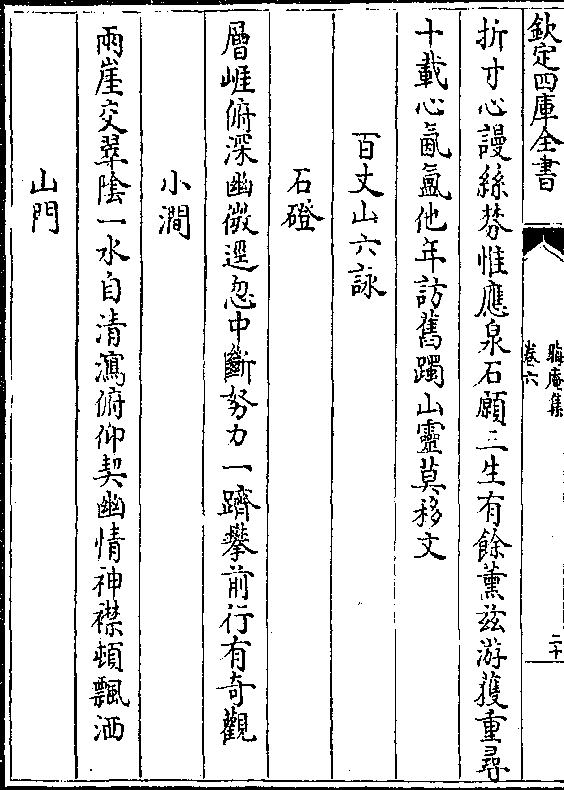 欽定四庫全書
晦庵集
卷六
二十
折寸心謾絲棼惟應泉石願三生有餘薰兹游獲重尋
十載心氤氲他年訪舊躅山靈莫移文
百丈山六詠
石磴
層崕俯深幽微逕忽中斷努力一躋攀前行有奇觀
小澗
兩崖交翠陰一水自清瀉俯仰契幽情神襟頓飄洒
山門